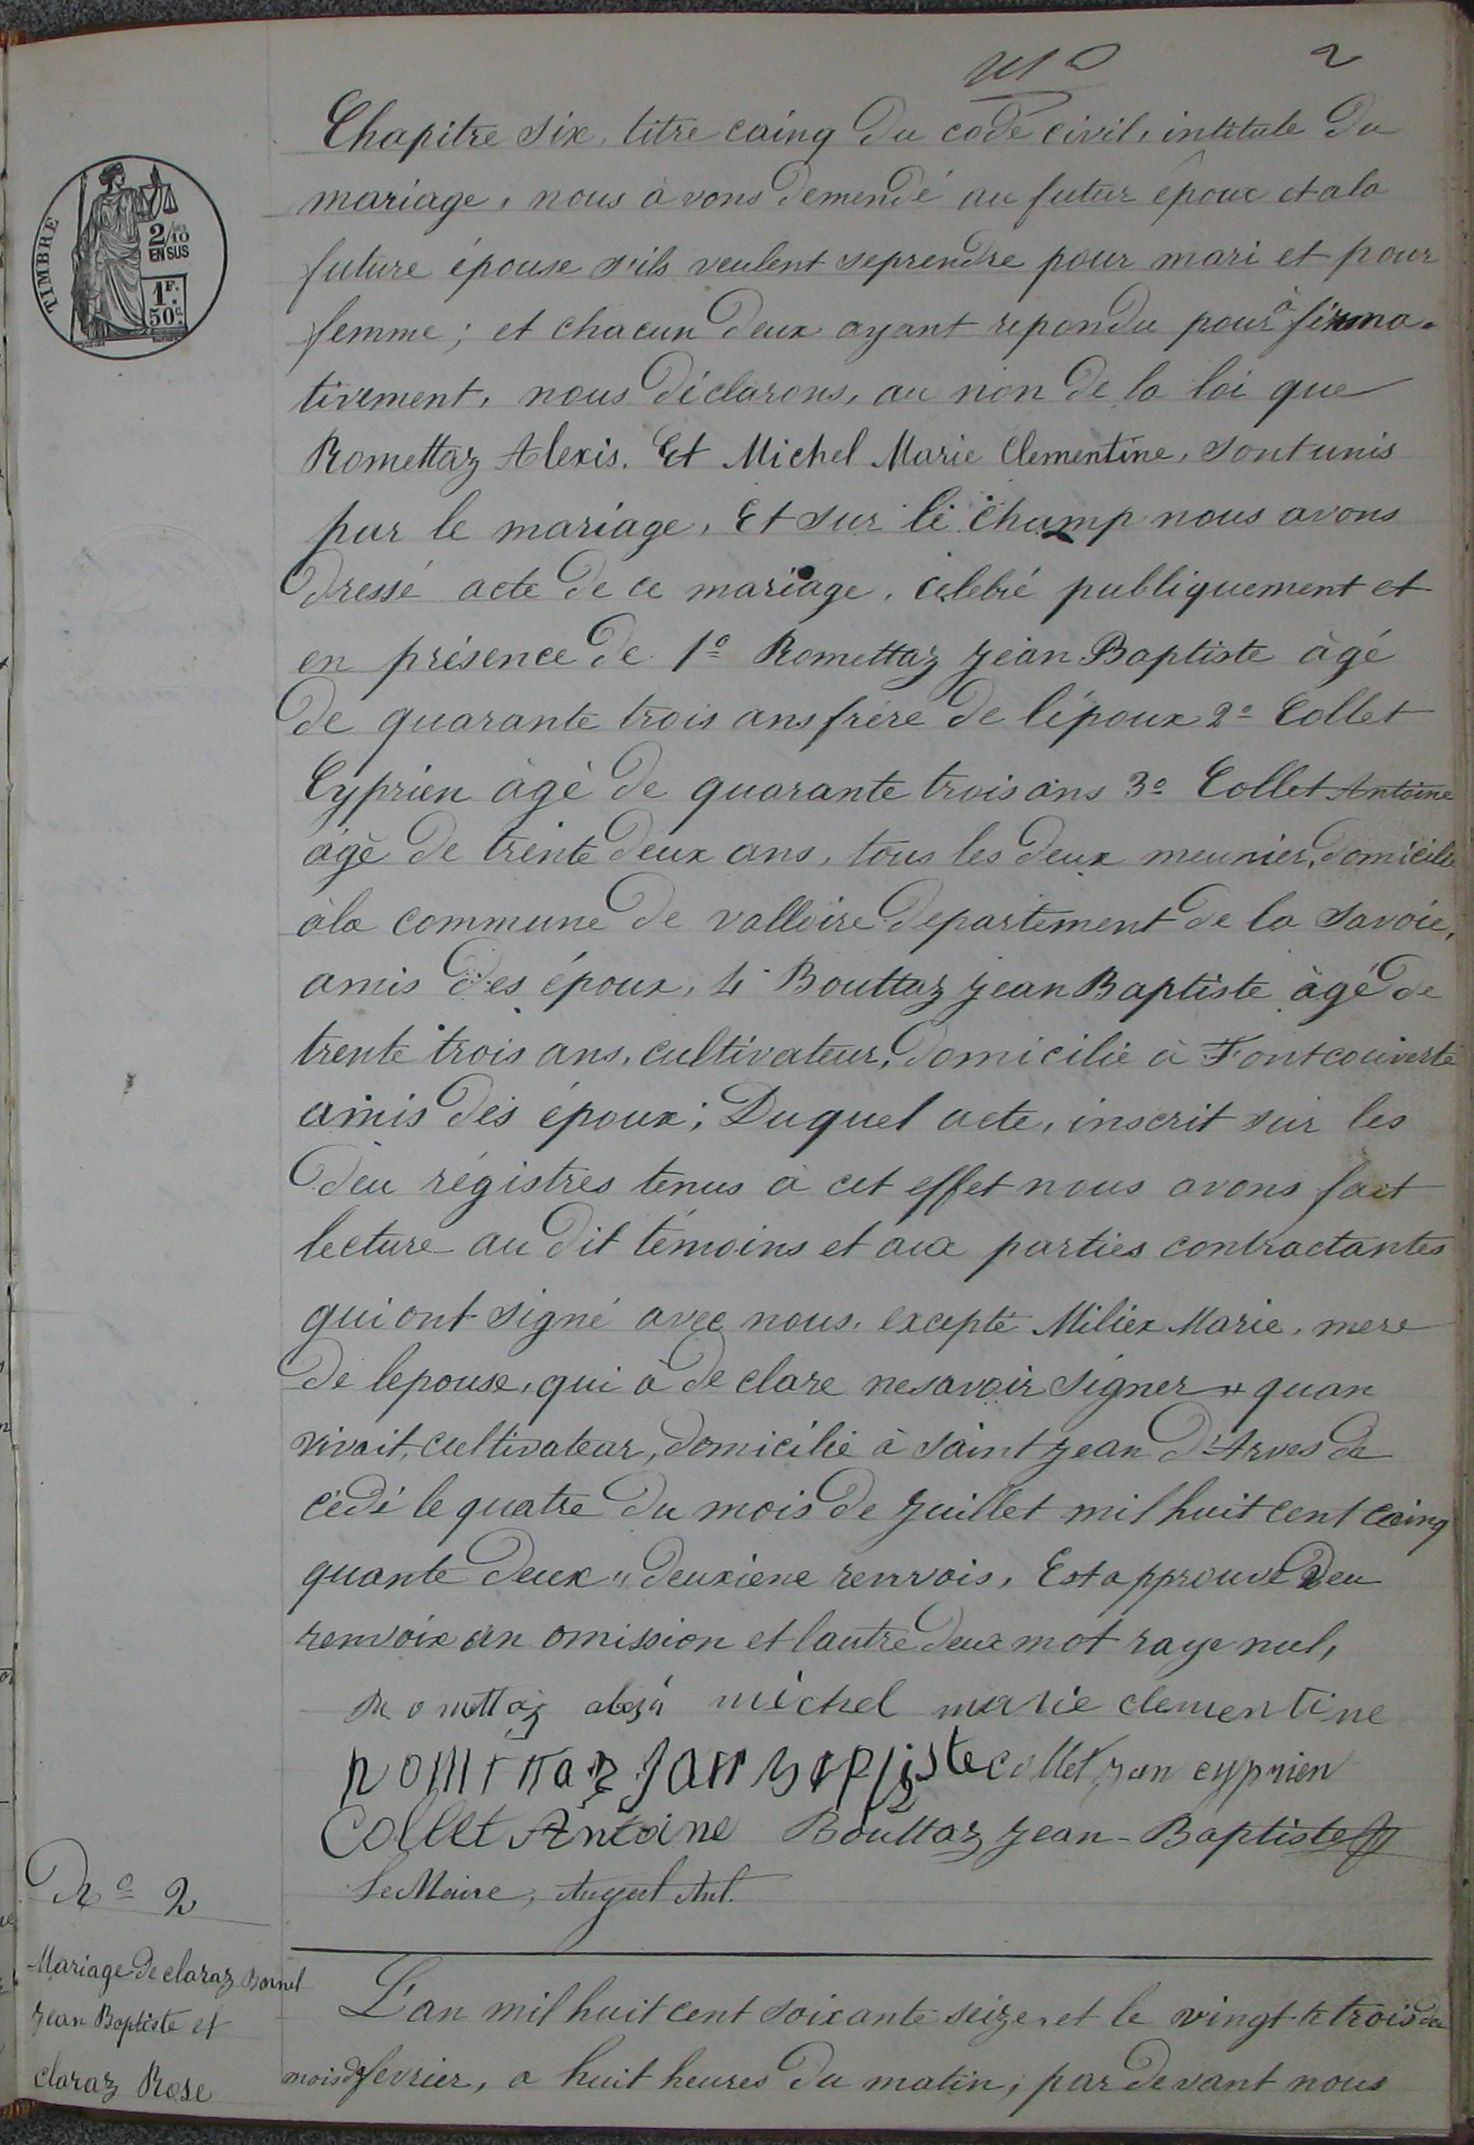 2
Chapitre six, titre caing du code civil, intitule du
mariage, nous à vons demendé au futur époux et ala
future épouse s'ils veulent seprendre pour mari et pour
femme; et chacun deux ayant repondu pour à firma-
tivement, nous déclarons, au non de la loi que
Romettaz Alexis. Et Michel Marie Clementine, sont unis
par le mariage, Et sur le champ nous avons
dressé acte de ce mariage, celebré publiquement et
en présence de 1º Romettaz Jean Baptiste àgé
de quarante trois ans frére de l'époux 2º Collet
Cyprien àgé de quarante trois ans 3º Collet Antoine
àgé de trente deux ans, tous les deux meunier, domicilie
àla commune de valloire departement de la Savoie,
amis des époux, 4º Bouttaz Jean Baptiste àgé de
trente trois ans, cultivateur, domicilié à Fontcouverte
amis des époux; Duquel acte, inscrit sur les
deu régistres tenus à cet effet nous avons fait
lecture au dit témoins et aux parties contractantes
qui ont signé avec nous, excepté Miliex Marie, mere
de lepouse, qui à de clare nesavoir signer # quan
vivait, cultivateur, domicilié à Saint Jean d'Arves de
cédé le quatre du mois de Juillet mil huit cent caing
quante deux " deuxiene renvois, Est approuvé deu
renvoix un omission et lautre deux mot raye nul,
Romettaz michel marie clementine
collet jan cyprien
Collet Antoine Bouttaz Jean-Baptiste
Le Maire,
TIMBRE
2/10
EN SUS
1F.
50c.
Nº 2
Mariage de claraz Bonnel
Jean Baptiste et
claraz Rose
L'an mil huit cent soixante seize, et le vingt-te trois du
mois de fevrier, a huit heures du matin, par devant nous